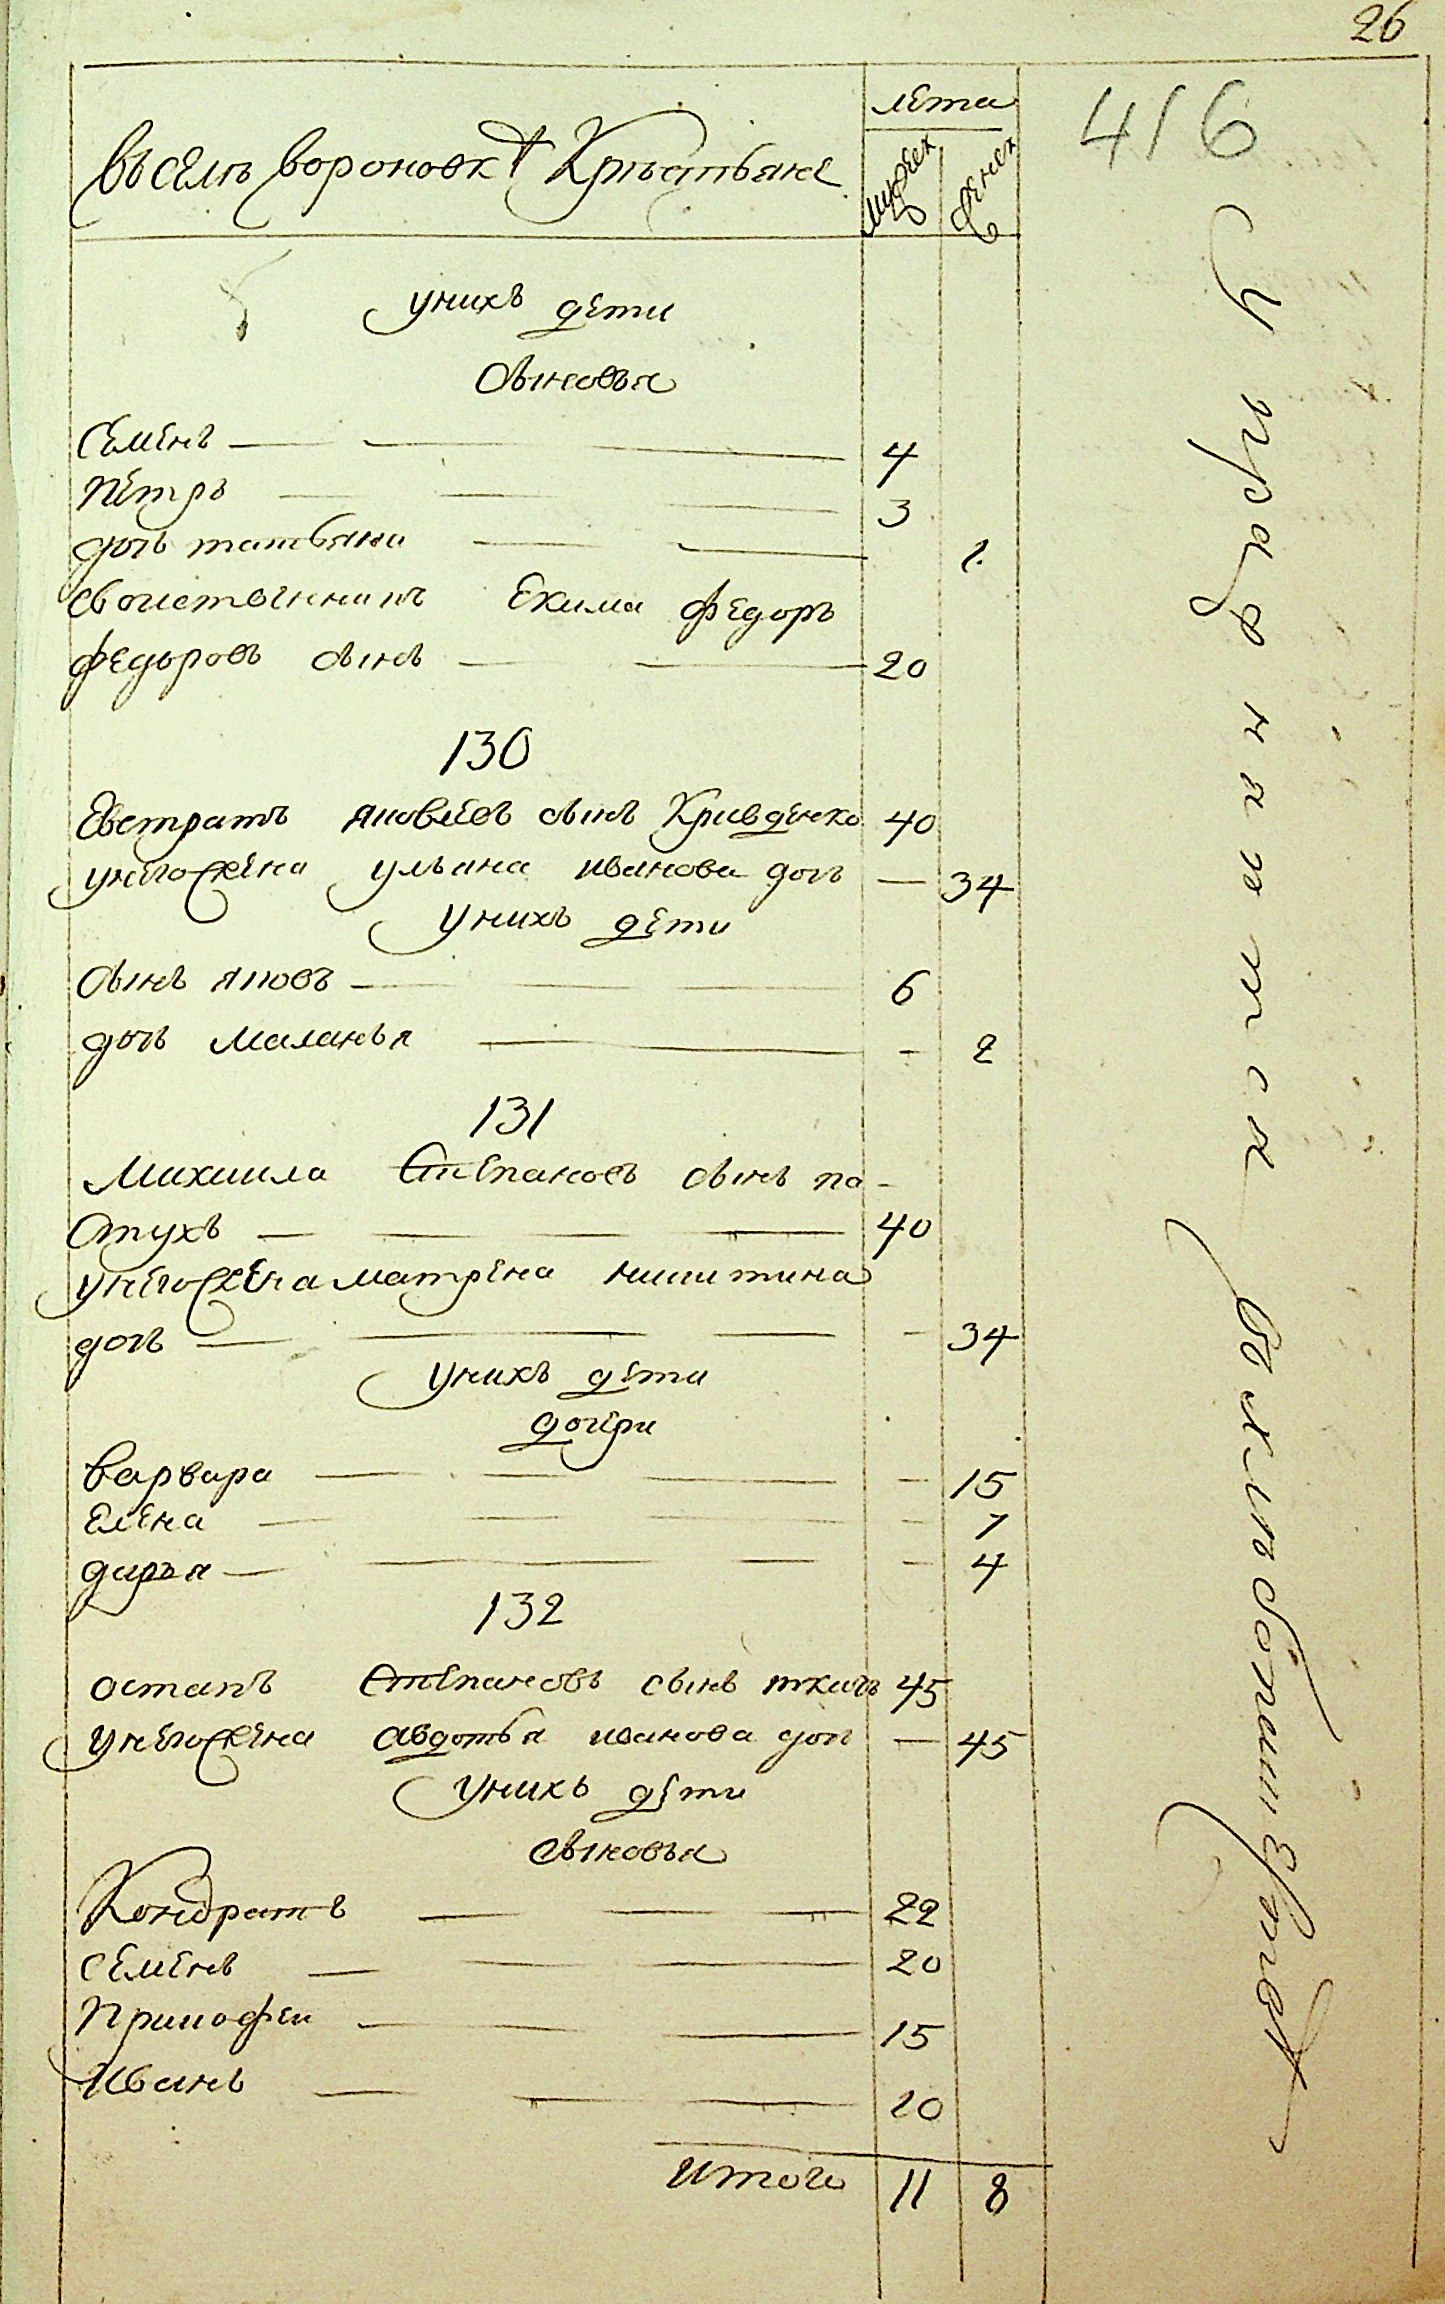 26
416
лета
мужеск
женск
Въ селѣ вороновкѣ Крѣстьяне
у нихъ дети
сыновья
Семенъ — 4
Петръ — 3
дочь татьяна — 1.
свойственникъ Екима федоръ
федоровъ сынъ — 20
130
Евстратъ яковлевъ сынъ Кривденко 40
у него жена ульяна иванова дочь — 34
у нихъ дети
сынъ яковъ — 6
дочь маланья — 2
131
Михаила Степановъ сынъ па-
стухъ — 40
у него жена матрена никитина
дочь — 34
у нихъ дети
дочери
варвара — 15
елена — 7
дарья — 4
132
остапъ Степановъ сынъ ткачь 45
у него жена авдотья иванова дочь — 45
у нихъ дети
сыновья
Кондратъ — 22
семенъ — 20
Прикофеи — 15
Иванъ — 10
Итого 11 8